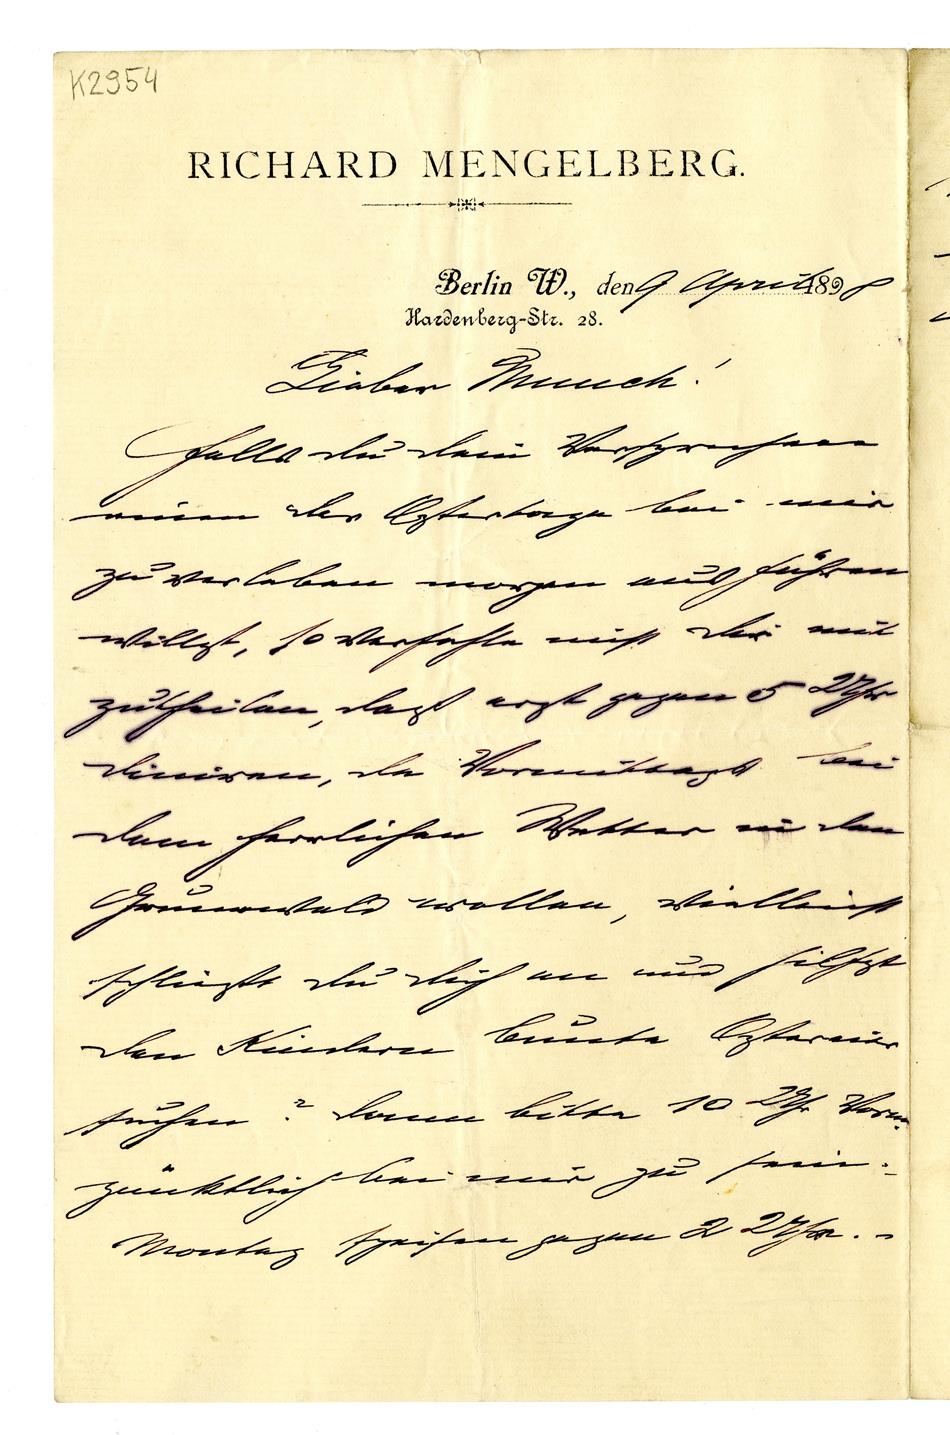 K2954
RICHARD MENGELBERG.
Berlin W., den 9 April 1898
Hardenberg-Str. 28.
Lieber Munch!
Falls du dein Versprechen
einen der Ostertage bei mir
zu verleben morgen ausführen
willst, so verfehle nicht dir mit
zutheilen, dass erst gegen 5 Uhr
diniren, da Vormittags bei
dem herrlichen Wetter in den
Grunewald wollen, vielleicht
schliest du dich an und hilfst
den Kindern bunte Ostereier
suchen? dann bitte 10 Uhr Vorm.
pünktlich bei mir zu sein.-
Montag speisen gegen 2 Uhr.-